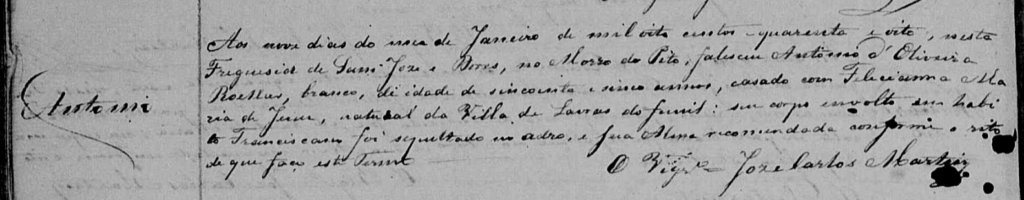 Aos nove dias do mez de Janeiro de mil oito centos quarenta e oito, nesta
Freguesia de Sam Joze e Dores, no Morro do Pito, faleceu Antonio d'Oliveira
branco, de idade de sincoenta e sinco annos, casado com Felicianna Ma
ria de Jezus, natural da Villa de Lavras do funil: seu corpo involto em habi
to Franciscano foi sepultado no adro, e sua Alma recomendada conforme o rito
de que faço este termo
Antonio
O Vigr.o Joze Carlos Martins